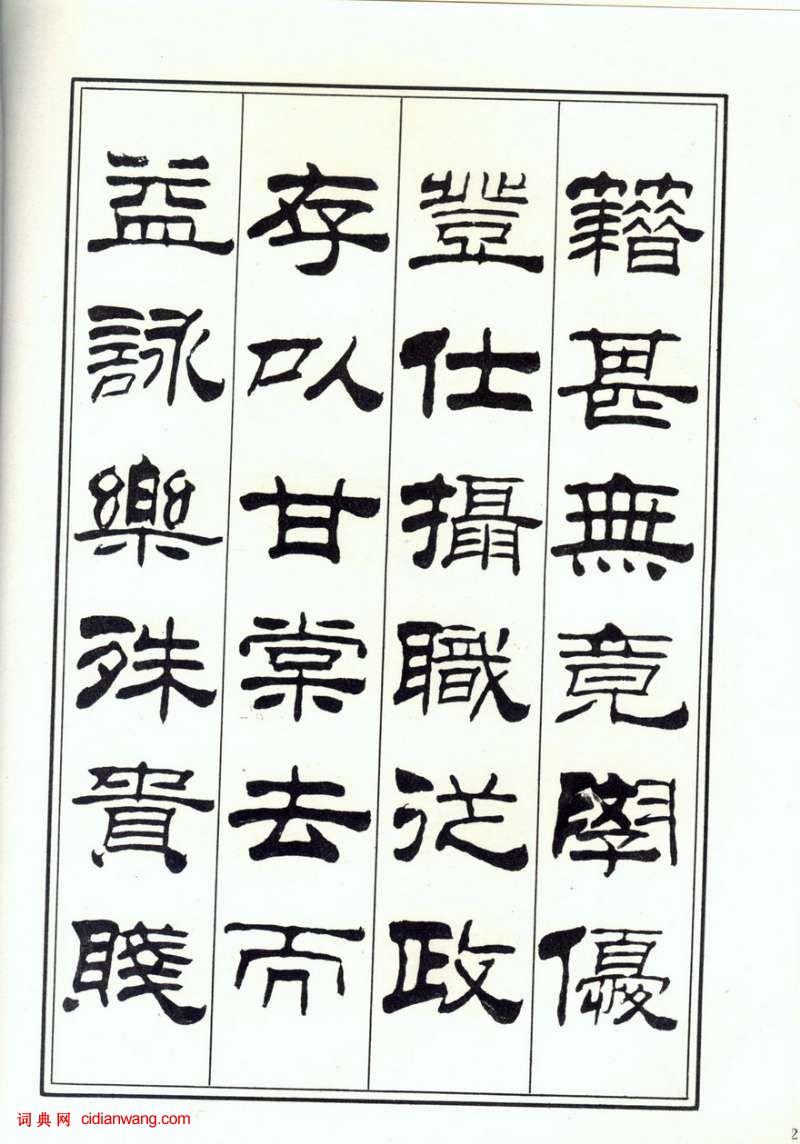 籍甚無竟學優
登仕攝職從政
存以甘棠去而
益詠樂殊貴賤
词典网 cidianwang.com
2